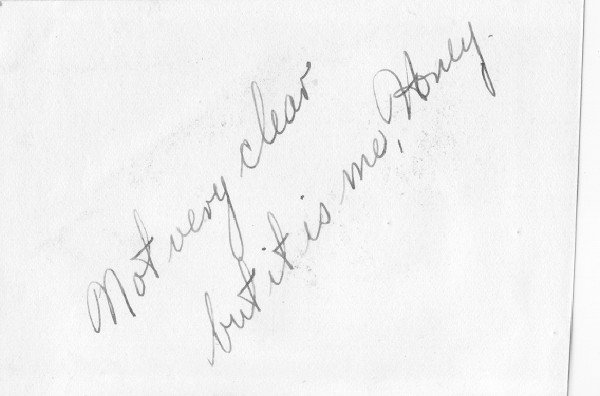 Not very clear
but it is me, Honey.